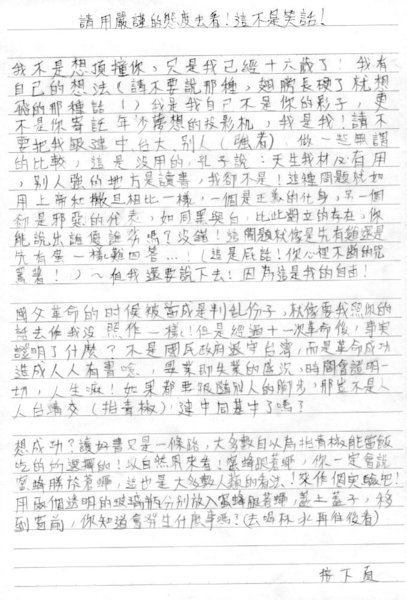 請用嚴謹的態度去看！這不是笑話！
我不是想頂撞你，只是我已經十六歲了！我有
自己的想法（請不要說那種，翅膀長硬了就想
飛的那種話！）我是我自己不是你的影子，更
不是你寄託年少夢想的投影机，我是我！請不
要把我跟建中、台大、別人（強者）做一些無謂
的比較，這是沒用的，孔子說：天生我材必有用
，別人強的地方是讀書，我卻不是！這種問題就如
用上帝和撒旦相比一樣，一個是正義的化身，另一個
卻是邪惡的代表，如同黑與白，比此對立的存在，你
能說出誰優誰劣嗎？沒錯！這問題就像是先有雞還是
先有蛋一樣難回答…！（這是屁話！你心裡不斷的咒
罵著！）～但我還要說下去！因為這是我的自由！
國父革命的时候被當成是判乱份子，就像要我照你的
話去做我沒照作一樣！但是經過十一次革命後，事実
證明了什麼？不是國民政府退守台灣，而是革命成功
造成人人有書唸，畢業即失業的盛況，時間會證明一
切，人生嘛！如果都要跟隨別人的腳步，那豈不是人
人台清交（拍青椒），建中同基牛了嗎？
想成功？讀好書又是一條路，大多數自以為拍青椒能當飯
吃的的選擇的！以自然界來看！蜜蜂跟蒼蠅，你一定會說
蜜蜂勝於蒼蠅，這也是大多數人類的看法！來作個実驗吧！
用兩個透明的玻璃瓶分別放入蜜蜂跟蒼蠅，蓋上蓋子，移
到窗前，你知道會發生什麼事嗎？（去喝杯水再往後看）
按下頁